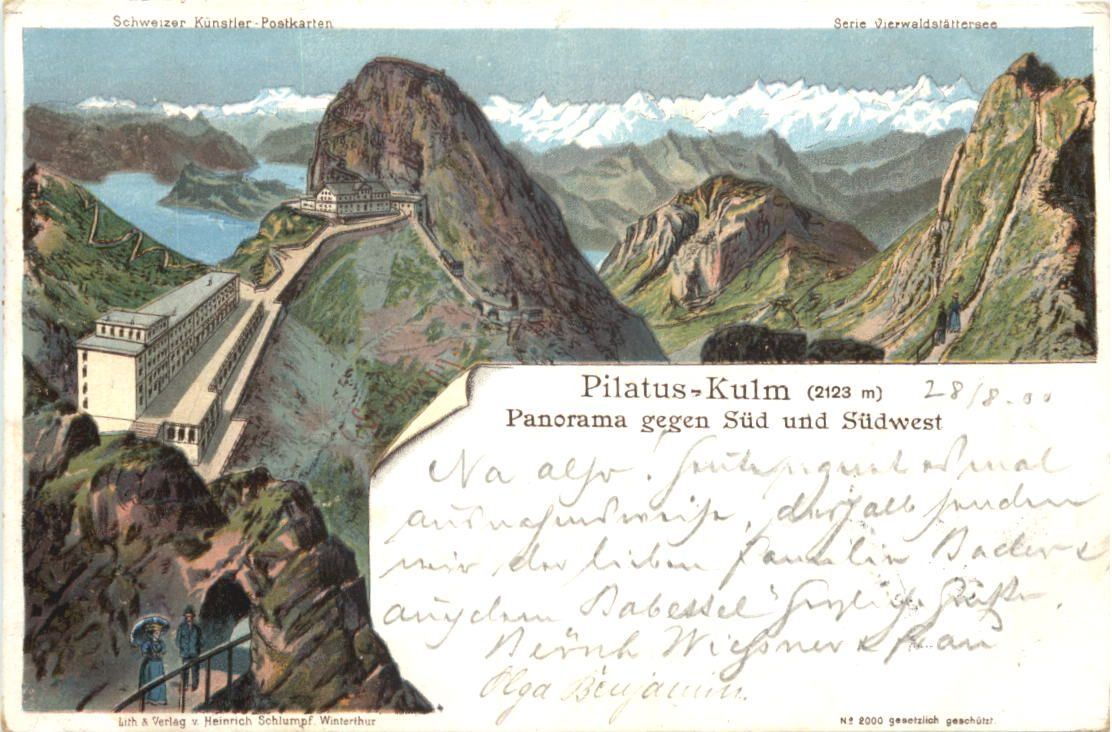 Schweizer Künstler-Postkarten
Serie Vierwaldstättersee
Pilatus-Kulm (2123 m) 28/8.00
Panorama gegen Süd und Südwest
Na also! Heute regnet es mal
ausnahmsweise, deshalb senden
wir der lieben Familie Bader
aus dem Grüße
Wießner & Frau
Olga Benjamin.
Lith & Verlag v. Heinrich Schlumpf. Winterthur
No 2000 gesetzlich geschützt.